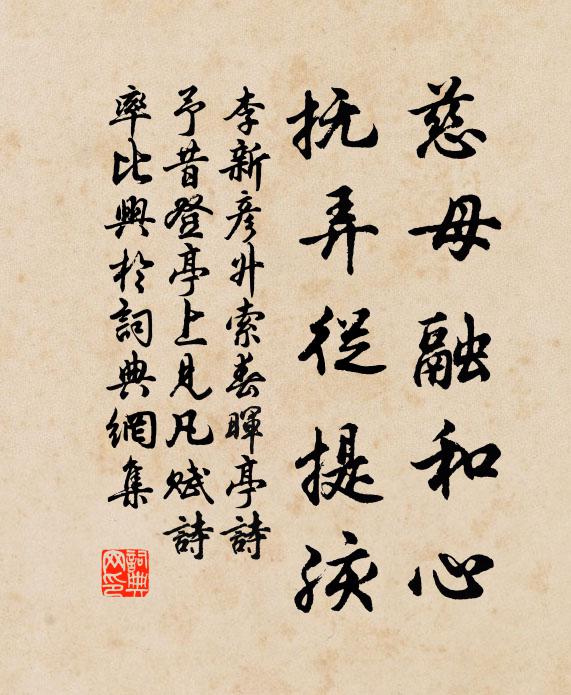 慈母融和心
抚弄從提孩
李新彦升索春暉亭詩
予昔登亭上見凡賦詩
率比興於詞典網集
詞典网印